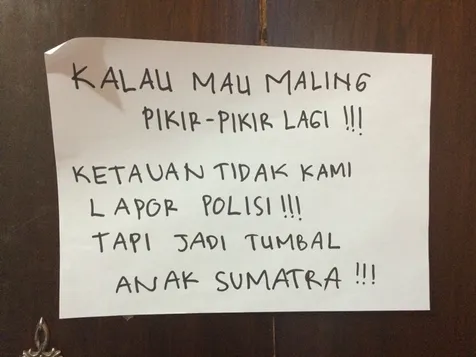 KALAU MAU MALING
PIKIR-PIKIR LAGI !!!
KETAUAN TIDAK KAMI
LAPOR POLISI!!!
TAPI JADI TUMBAL
ANAK SUMATRA !!!